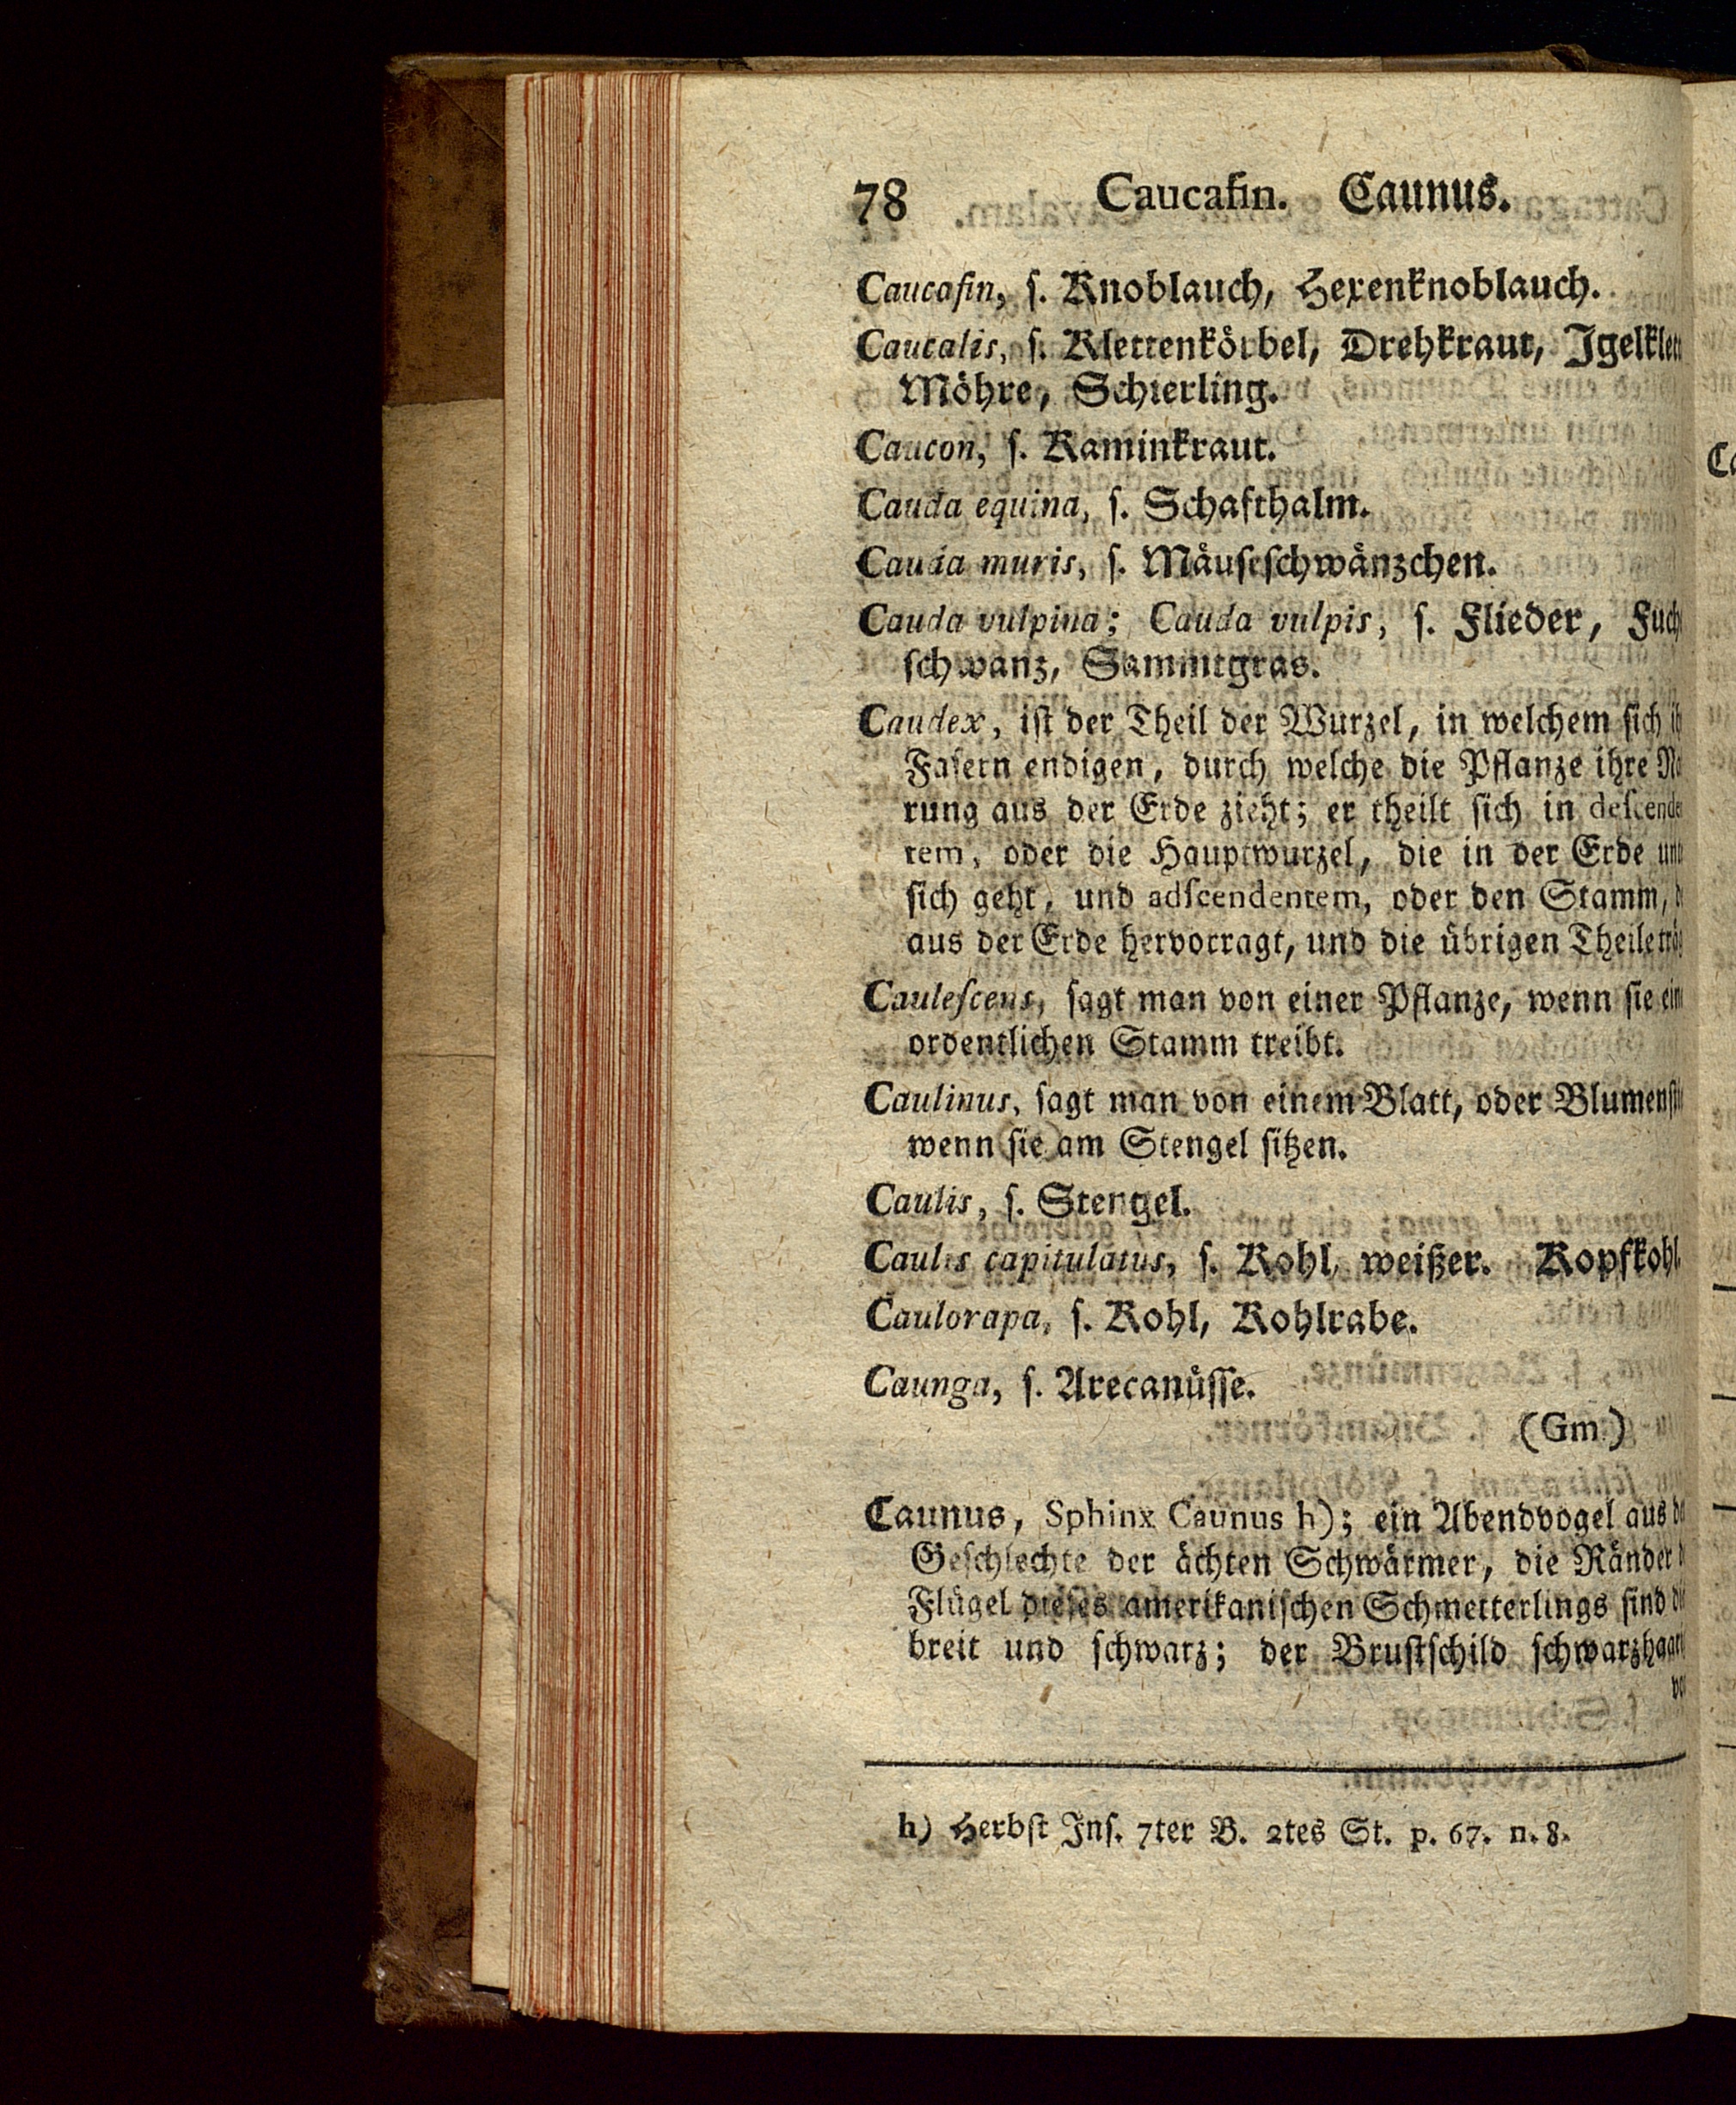 78 Caucaſin. Caunus.
Caucaſin, ſ. Knoblauch, Hexenknoblauch.
Caucalis, ſ. Klettenkörbel, Drehkraut, Igelklett
Möhre, Schierling.
Caucon, ſ. Kaminkraut.
Cauda equina, ſ. Schafthalm.
Cauda muris, ſ. Mäuſeſchwänzchen.
Cauda vulpina; Cauda vulpis, ſ. Flieder, Fuch
ſchwanz, Sammtgras.
Caudex, iſt der Theil der Wurzel, in welchem ſich
Faſern endigen, durch welche die Pflanze ihre
rung aus der Erde zieht; er theilt ſich in deſcende
tem, oder die Hauptwurzel, die in der Erde
ſich geht, und adſcendentem, oder den Stamm,
aus der Erde hervorragt, und die übrigen Theile
Cauleſcens, ſagt man von einer Pflanze, wenn ſie
ordentlichen Stamm treibt.
Caulinus, ſagt man von einem Blatt, oder
wenn ſie am Stengel ſitzen.
Caulis, ſ. Stengel.
Caulis capitulatus, ſ. Kohl, weißer. Kopfkohl.
Caulorapa, ſ. Kohl, Kohlrabe.
Caunga, ſ. Arecanüſſe.
(Gm.)
Caunus, Sphinx Caunus h); ein Abendvogel aus
Geſchlechte der ächten Schwärmer, die Ränder
Flügel dieſes amerikaniſchen Schmetterlings ſind
breit und ſchwarz; der Bruſtſchild
h) Herbſt Inſ. 7ter B. 2tes St. p. 67. n. 8.